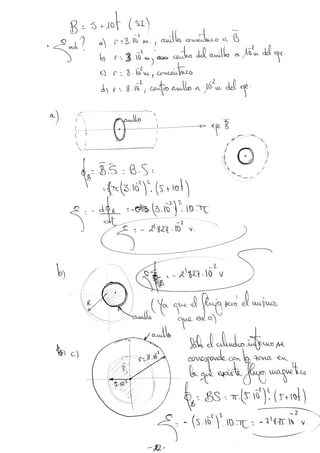 B = 5 + 10t (SI)
Eind? a) r = 3.10⁻² m., anillo concéntrico a B
b) r = 3.10⁻² m, centro del anillo a 10⁻² m del eje.
c) r = 8.10⁻² m, concéntrico
d) r = 8.10⁻², centro anillo a 10⁻² m del eje.
a)
anillo
eje B
ϕB = B.S = B.S =
= {π(3.10⁻²)². (5 + 10t)
E = - dϕB/dt = - (3.10⁻²)². 10.π
E = - 2'827.10⁻² v.
b)
E = - 2'827.10⁻² v
R
anillo
(Ya que el flujo será el mismo
que en a)
c)
anillo
r = 8.10⁻²
B
5.10⁻²
Solo el cilindro interno se
corresponde con la zona en
la que existe flujo magnético.
ϕB = BS = π.(5.10⁻²)². (5 + 10t)
E = - (5.10⁻²)² 10 π = - 7'85.10⁻² v
-22-